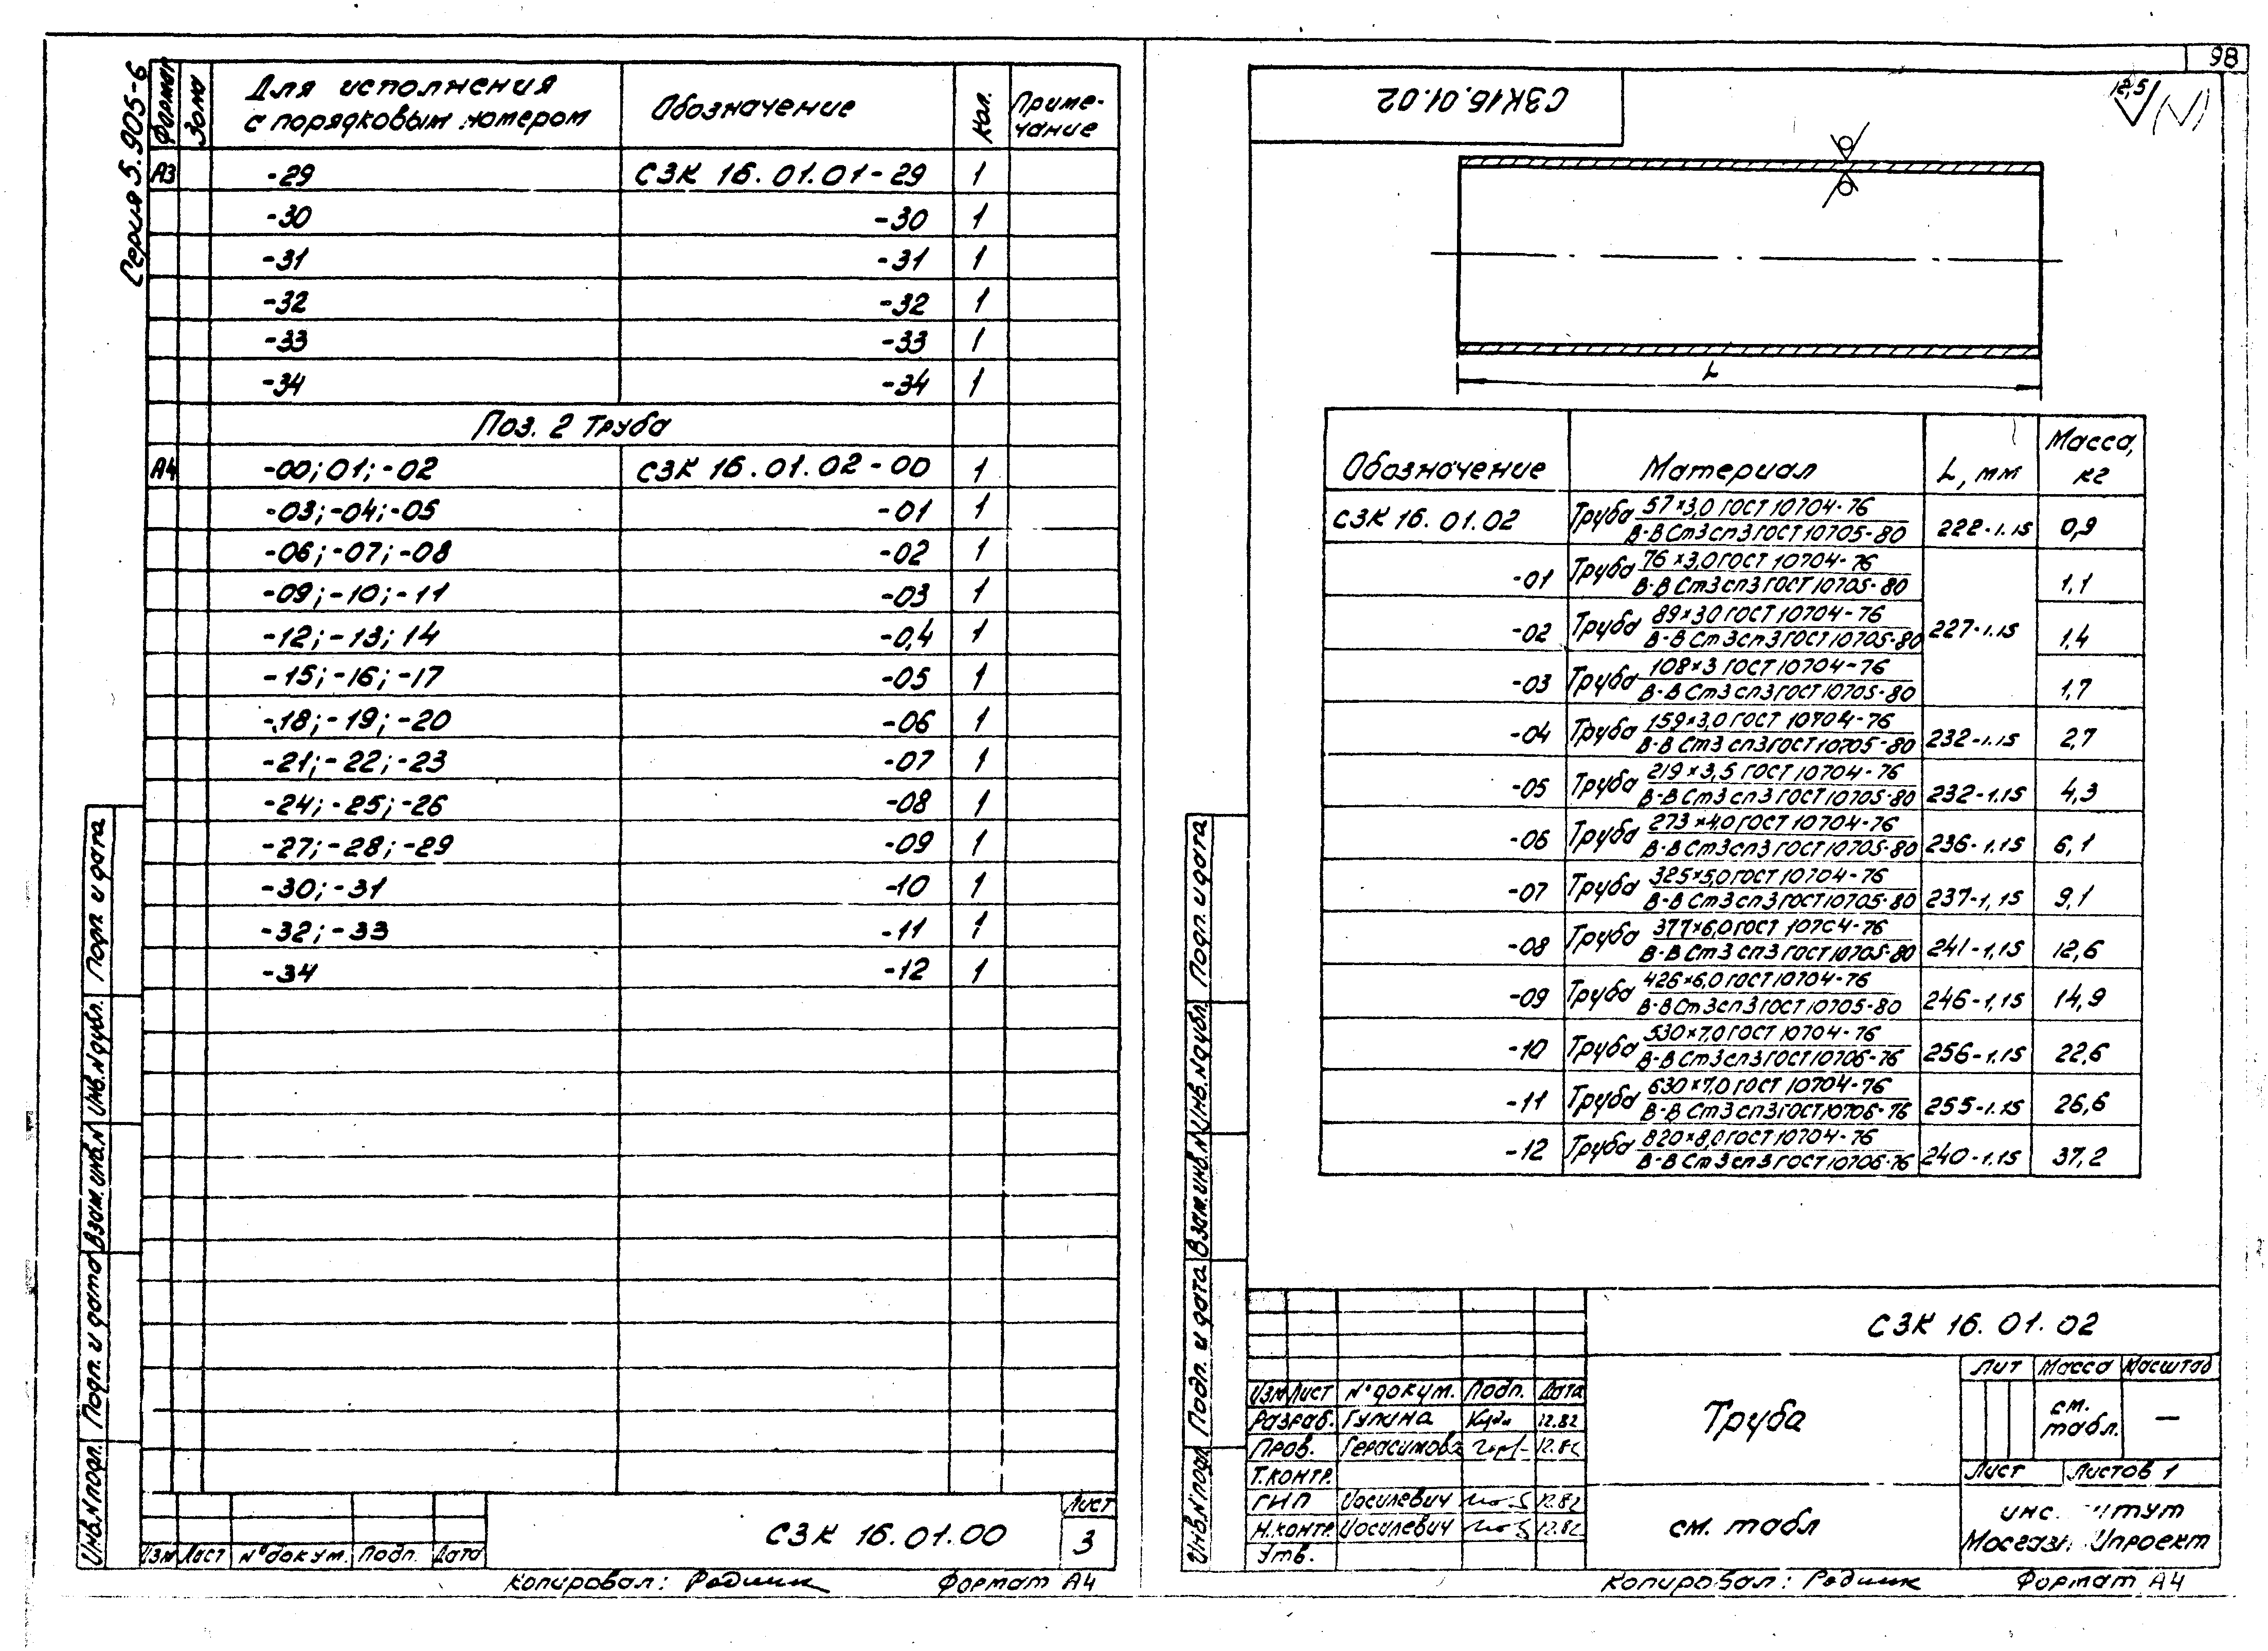 98
Серия 5.905-6
Формат Зона Для исполнения с порядковым номером Обозначение Кол. Примечание
А3 -29 СЗК 16.01.01-29 1
-30 -30 1
-31 -31 1
-32 -32 1
-33 -33 1
-34 -34 1
Поз. 2 Труба
А4 -00; 01; -02 СЗК 16.01.02-00 1
-03; -04; -05 -01 1
-06; -07; -08 -02 1
-09; -10; -11 -03 1
-12; -13; 14 -0,4 1
-15; -16; -17 -05 1
-18; -19; -20 -06 1
-21; -22; -23 -07 1
-24; -25; -26 -08 1
-27; -28; -29 -09 1
-30; -31 -10 1
-32; -33 -11 1
-34 -12 1
Инв.N подл. Подп. и дата Взам.инв.N Инв.N дубл. Подп. и дата
Изм Лист N° докум. Подп. Дата
СЗК 16.01.00
Лист
3
Копировал: Родник Формат А4
СЗК16.01.02
12,5
L
Обозначение Материал L, мм Масса, кг
СЗК 16.01.02 Труба 57×3,0 ГОСТ 10704-76 В-В Ст3сп3 ГОСТ 10705-80 222-1.15 0,9
-01 Труба 76×3,0 ГОСТ 10704-76 В-В Ст3сп3 ГОСТ 10705-80 1,1
-02 Труба 89×30 ГОСТ 10704-76 В-В Ст3сп3 ГОСТ 10705-80 227-1.15 1,4
-03 Труба 108×3 ГОСТ 10704-76 В-В Ст3сп3 ГОСТ 10705-80 1,7
-04 Труба 159×3,0 ГОСТ 10704-76 В-В Ст3сп3 ГОСТ 10705-80 232-1.15 2,7
-05 Труба 219×3,5 ГОСТ 10704-76 В-В Ст3сп3 ГОСТ 10705-80 232-1.15 4,3
-06 Труба 273×4,0 ГОСТ 10704-76 В-В Ст3сп3 ГОСТ 10705-80 236-1.15 6,1
-07 Труба 325×5,0 ГОСТ 10704-76 В-В Ст3сп3 ГОСТ 10705-80 237-1,15 9,1
-08 Труба 377×6,0 ГОСТ 10704-76 В-В Ст3сп3 ГОСТ 10705-80 241-1,15 12,6
-09 Труба 426×6,0 ГОСТ 10704-76 В-В Ст3сп3 ГОСТ 10705-80 246-1,15 14,9
-10 Труба 530×7,0 ГОСТ 10704-76 В-В Ст3сп3 ГОСТ 10706-76 256-1.15 22,6
-11 Труба 630×7,0 ГОСТ 10704-76 В-В Ст3сп3 ГОСТ 10706-76 255-1.15 26,6
-12 Труба 820×8,0 ГОСТ 10704-76 В-В Ст3сп3 ГОСТ 10706-76 240-1.15 37,2
Инв.N подл. Подп. и дата Взам.инв.N Инв.N дубл. Подп. и дата
СЗК 16.01.02
Изм Лист N° докум. Подп. Дата
Разраб. Гулина 12.82
Пров. Герасимова 12.82
Т.контр.
ГИП Иосилевич 12.82
Н.контр. Иосилевич 12.82
Утв.
Труба
см. табл
Лит Масса Масштаб
см. табл. —
Лист Листов 1
Копировал: Родник Формат А4